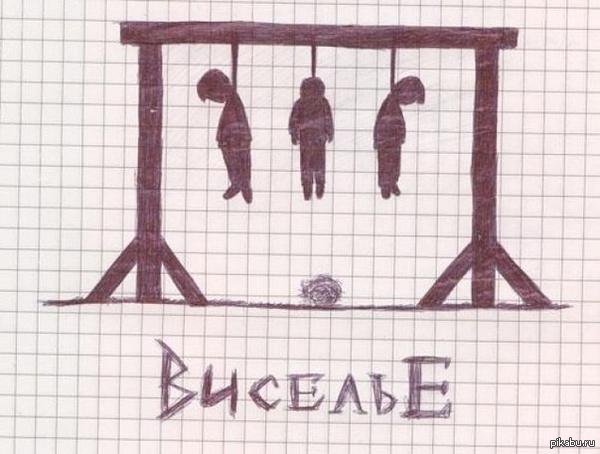 ВисельЕ
pikabu.ru